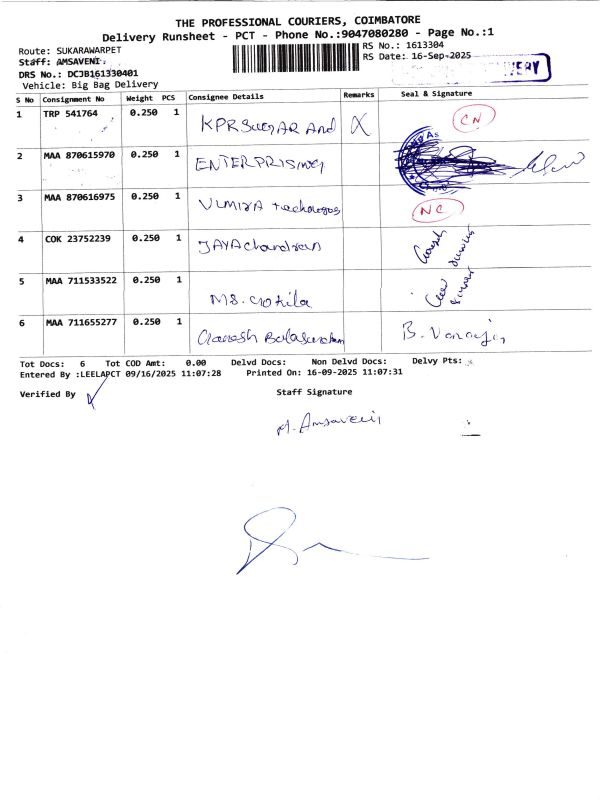 THE PROFESSIONAL COURIERS, COIMBATORE
Delivery Runsheet - PCT - Phone No.:9047080280 - Page No.:1
Route: SUKARAWARPET
RS No.: 1613304
Staff: AMSAVENI
RS Date: 16-Sep-2025
DRS No.: DCJB161330401
Vehicle: Big Bag Delivery
S No Consignment No Weight PCS Consignee Details Remarks Seal & Signature
1 TRP 541764 0.250 1 KPR SUGAR And X CN
2 MAA 870615970 0.250 1
3 MAA 870616975 0.250 1 NC
4 COK 23752239 0.250 1 JAYAchandran
5 MAA 711533522 0.250 1 MS. Gokila
6 MAA 711655277 0.250 1 Ganesh B.
Tot Docs: 6 Tot COD Amt: 0.00 Delvd Docs: Non Delvd Docs: Delvy Pts:
Entered By :LEELAPCT 09/16/2025 11:07:28 Printed On: 16-09-2025 11:07:31
Verified By Staff Signature
Amsaveni